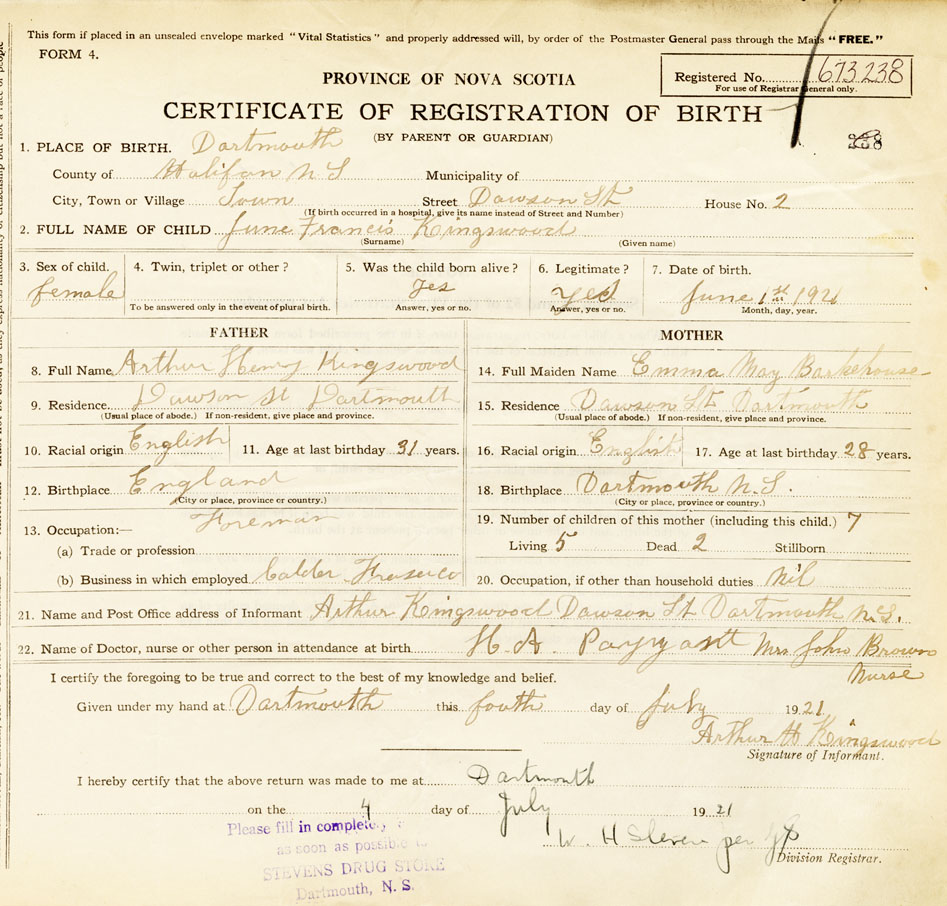 This form if placed in an unsealed envelope marked "Vital Statistics" and properly addressed will, by order of the Postmaster General pass through the Mails "FREE."
FORM 4.
PROVINCE OF NOVA SCOTIA
Registered No. 673238
For use of Registrar General only.
CERTIFICATE OF REGISTRATION OF BIRTH
(BY PARENT OR GUARDIAN)
238
1. PLACE OF BIRTH. Dartmouth
County of Halifax N S Municipality of
City, Town or Village Town Street Dawson St House No. 2
(If birth occurred in a hospital, give its name instead of Street and Number)
2. FULL NAME OF CHILD June Francis Kingswood
(Surname) (Given name)
3. Sex of child. 4. Twin, triplet or other? 5. Was the child born alive? 6. Legitimate? 7. Date of birth.
female Yes Yes June 1st 1921
To be answered only in the event of plural birth. Answer, yes or no. Answer, yes or no. Month, day, year.
FATHER MOTHER
8. Full Name Arthur Henry Kingswood 14. Full Maiden Name Emma May Barkhouse
9. Residence Dawson St Dartmouth 15. Residence Dawson St Dartmouth
(Usual place of abode.) If non-resident, give place and province. (Usual place of abode.) If non-resident, give place and province.
10. Racial origin English 11. Age at last birthday 31 years. 16. Racial origin English 17. Age at last birthday 28 years.
12. Birthplace England 18. Birthplace Dartmouth N.S.
(City or place, province or country.) (City or place, province or country.)
13. Occupation:— Foreman 19. Number of children of this mother (including this child.) 7
(a) Trade or profession Living 5 Dead 2 Stillborn
(b) Business in which employed Calder Fraser Co 20. Occupation, if other than household duties Nil
21. Name and Post Office address of Informant Arthur Kingswood Dawson St Dartmouth N.S.
22. Name of Doctor, nurse or other person in attendance at birth H. A. Mrs John Brown
Nurse
I certify the foregoing to be true and correct to the best of my knowledge and belief.
Given under my hand at Dartmouth this fouth day of July 1921
Arthur H Kingswood
Signature of Informant.
I hereby certify that the above return was made to me at Dartmouth
on the 4 day of July 1921
W. H Stevens per
Division Registrar.
Please fill in completely
as soon as possible
STEVENS DRUG STORE
Dartmouth, N. S.